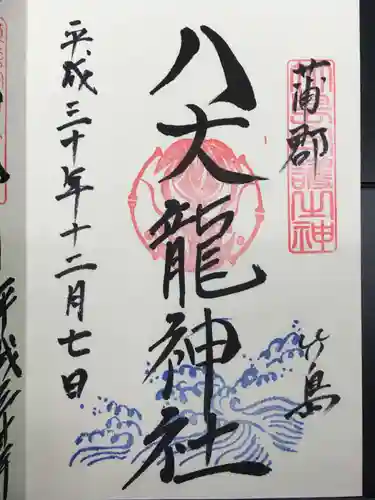 蒲郡
竹島
八大龍神社
平成三十年十二月七日
平成三十年